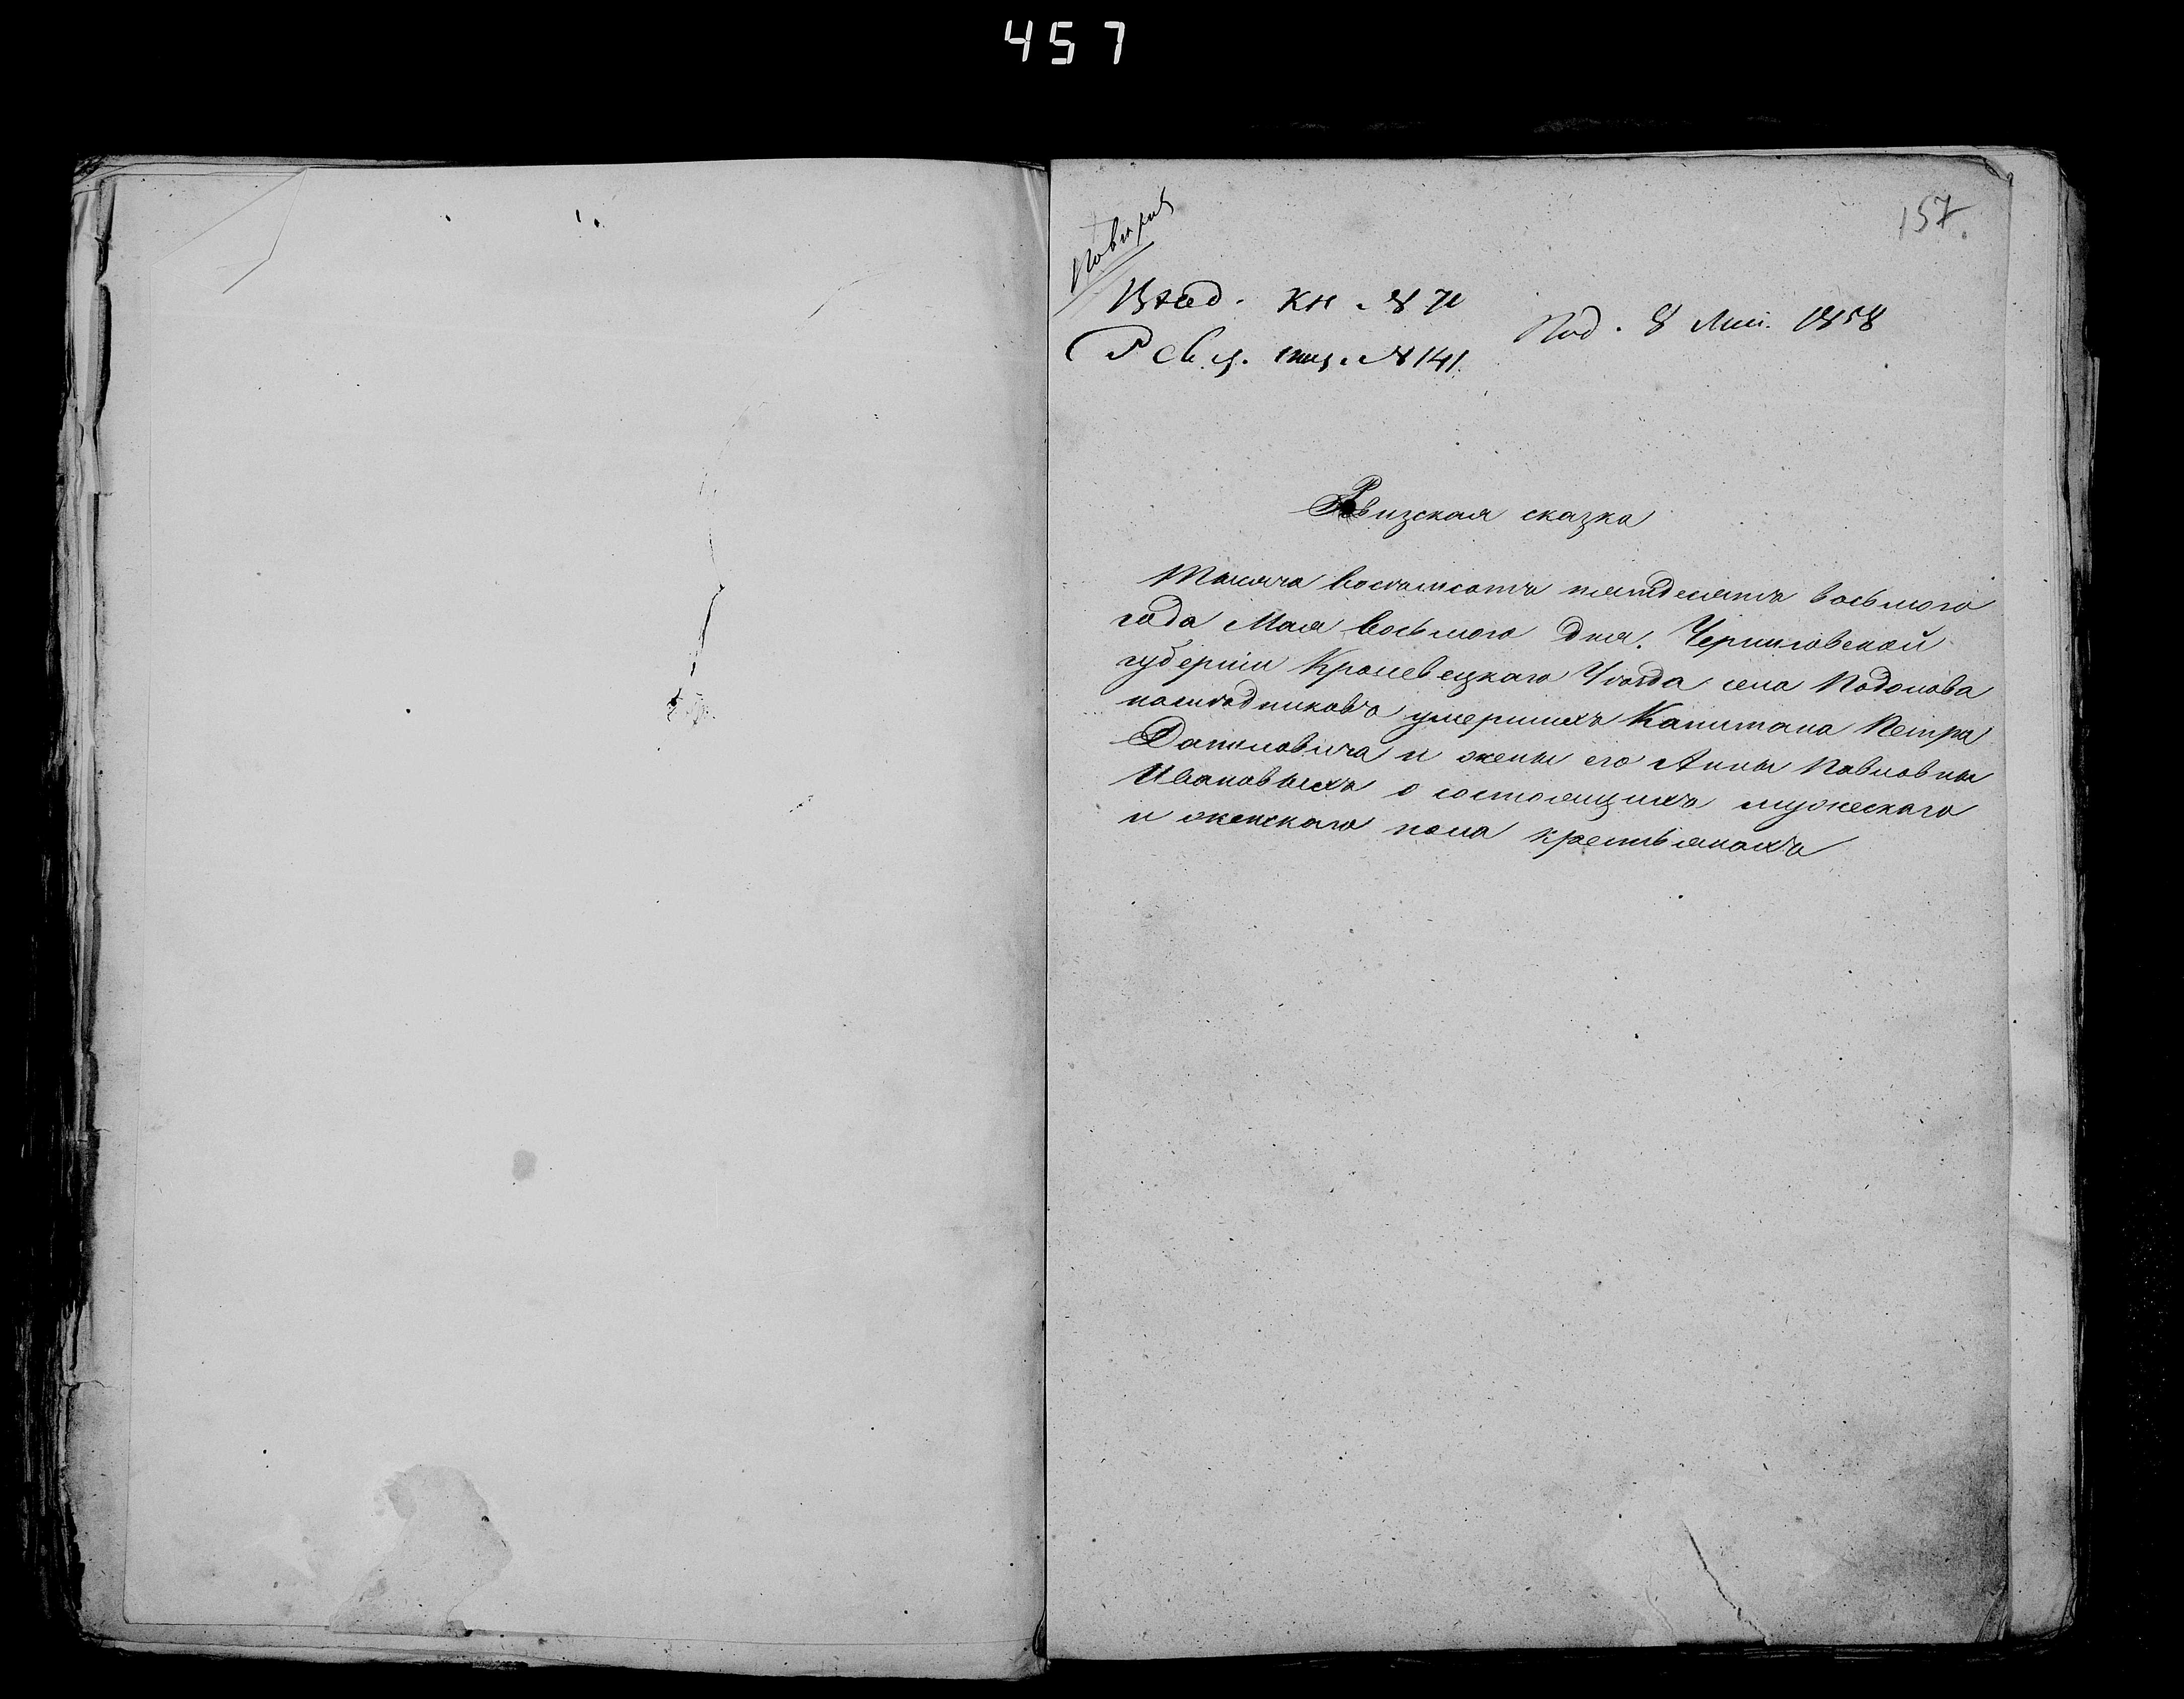 457
157.
Вход. Кн. № 70
Под. 8 Маі. 1858
Ревиз. № 141.
Ревизская сказка
Тысяча восемьсотъ пятдесятъ восьмого
года Мая восьмого дня. Черниговской
губерніи Кролевецкаго Уѣзда села Подолова
наслѣдниковъ умершихъ Капитана Петра
Даниловича и жены его Анны Павловны
Ивановыхъ о состоящихъ мужескаго
и женскаго пола крестьянахъ